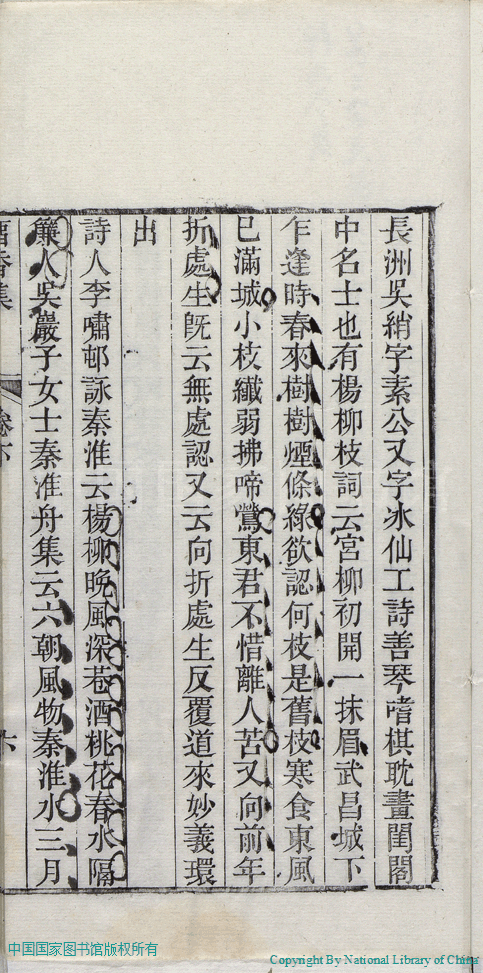 長洲吳綃字素公又字冰仙工詩善琴嗜棋耽畫閨閣
中名士也有楊柳枝詞云宮柳初開一抹眉武昌城下
乍逢時春來樹樹煙條綠欲認何枝是舊枝寒食東風
已滿城小枝纖弱拂啼鶯東君不惜離人苦又向前年
折處生旣云無處認又云向折處生反覆道來妙義環
出
詩人李嘯邨詠秦淮云楊柳晚風深巷酒桃花春水隔
簾人吳巖子女士秦淮舟集云六朝風物秦淮水三月
香集
卷下
六
中国国家图书馆版权所有
Copyright By National Library of China